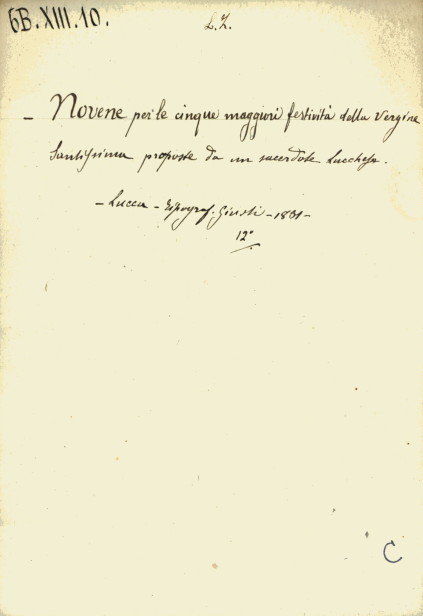 6B.XIII.10.
L.Z.
– Novene per le cinque maggiori festività della Vergine
Santissima proposte da un sacerdote Lucchese.
– Lucca – Tipograf. Giusti – 1851 –
12°
C